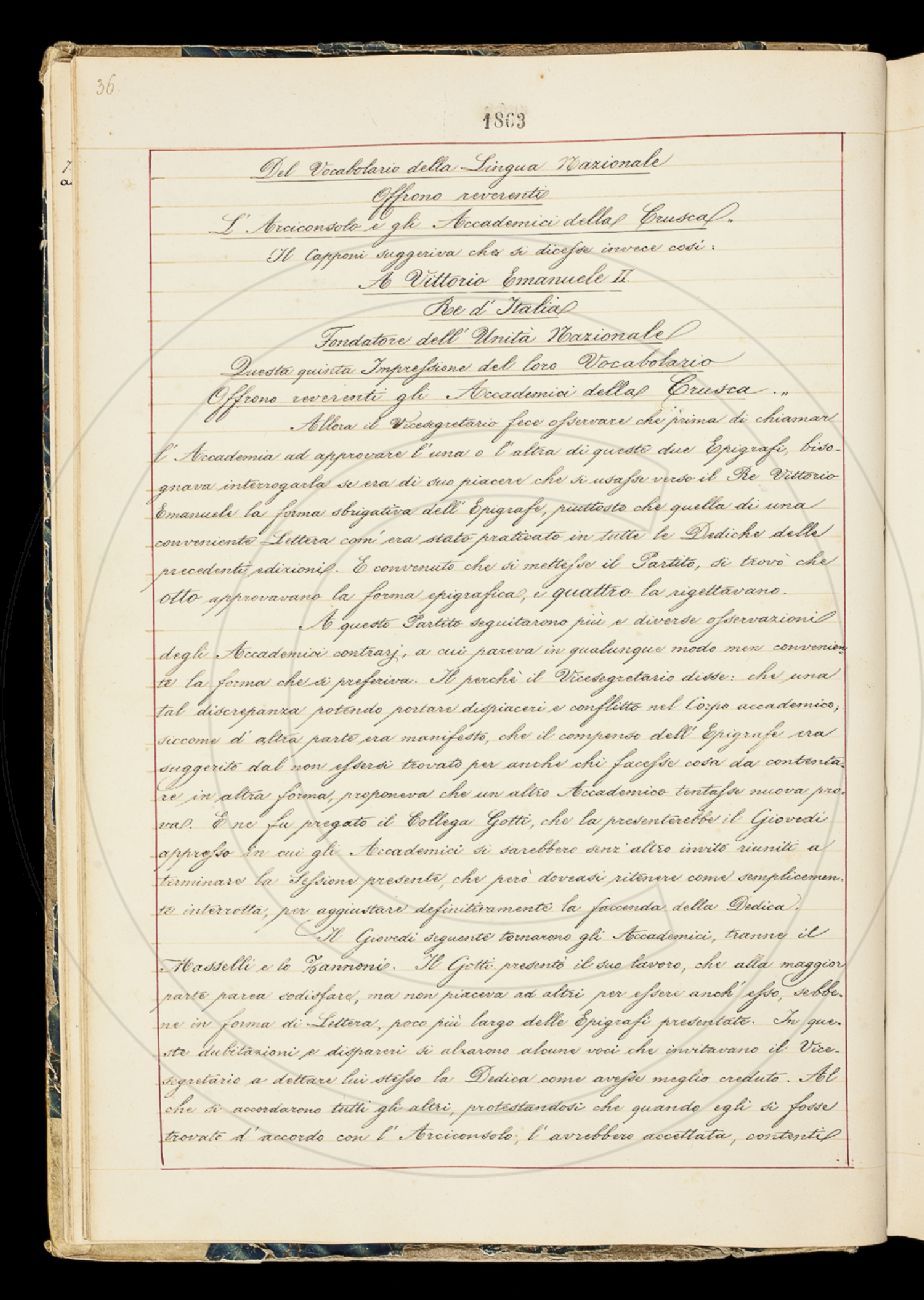 36
1863
Del Vocabolario della Lingua Nazionale
Offrono reverenti
L'Arciconsolo e gli Accademici della Crusca„
Il Capponi suggeriva che si dicesse invece così:
A Vittorio Emanuele II
Re d'Italia
Fondatore dell'Unità Nazionale
Questa quinta Impressione del loro Vocabolario
Offrono reverenti gli Accademici della Crusca.„
Allora il Vicesegretario fece osservare che prima di chiamar
l'Accademia ad approvare l'una o l'altra di queste due Epigrafi, biso-
gnava interrogarla se era di suo piacere che si usasse verso il Re Vittorio
Emanuele la forma sbrigativa dell'Epigrafe, piuttosto che quella di una
conveniente Lettera com'era stato praticato in tutte le Dediche delle
precedenti edizioni. E convenuto che si mettesse il Partito, si trovò che
otto approvavano la forma epigrafica, e quattro la rigettavano.
A questo Partito seguitarono più e diverse osservazioni
degli Accademici contrarj, a cui pareva in qualunque modo men convenien-
te la forma che si preferiva. Il perchè il Vicesegretario disse: che una
tal discrepanza potendo portare dispiaceri e conflitto nel Corpo accademico,
siccome d'altra parte era manifesto, che il compenso dell'Epigrafe era
suggerito dal non essersi trovato per anche chi facesse cosa da contenta-
re in altra forma, proponeva che un altro Accademico tentasse nuova pro-
va. E ne fu pregato il Collega Gotti, che la presenterebbe il Giovedì
appresso in cui gli Accademici si sarebbero senz'altro invito riuniti a
terminare la Sessione presente, che però doveasi ritenere come semplicemen-
te interrotta, per aggiustare definitivamente la faccenda della Dedica.
Il Giovedì seguente tornarono gli Accademici, tranne il
Masselli e lo Zannoni. Il Gotti presentò il suo lavoro, che alla maggior
parte parea sodisfare, ma non piaceva ad altri per essere anch'esso, sebbe-
ne in forma di Lettera, poco più largo delle Epigrafi presentate. In que-
ste dubitazioni e dispareri si alzarono alcune voci che invitavano il Vice-
segretario a dettare lui stesso la Dedica come avesse meglio creduto. Al
che si accordarono tutti gli altri, protestandosi che quando egli si fosse
trovato d'accordo con l'Arciconsolo, l'avrebbero accettata, contenti